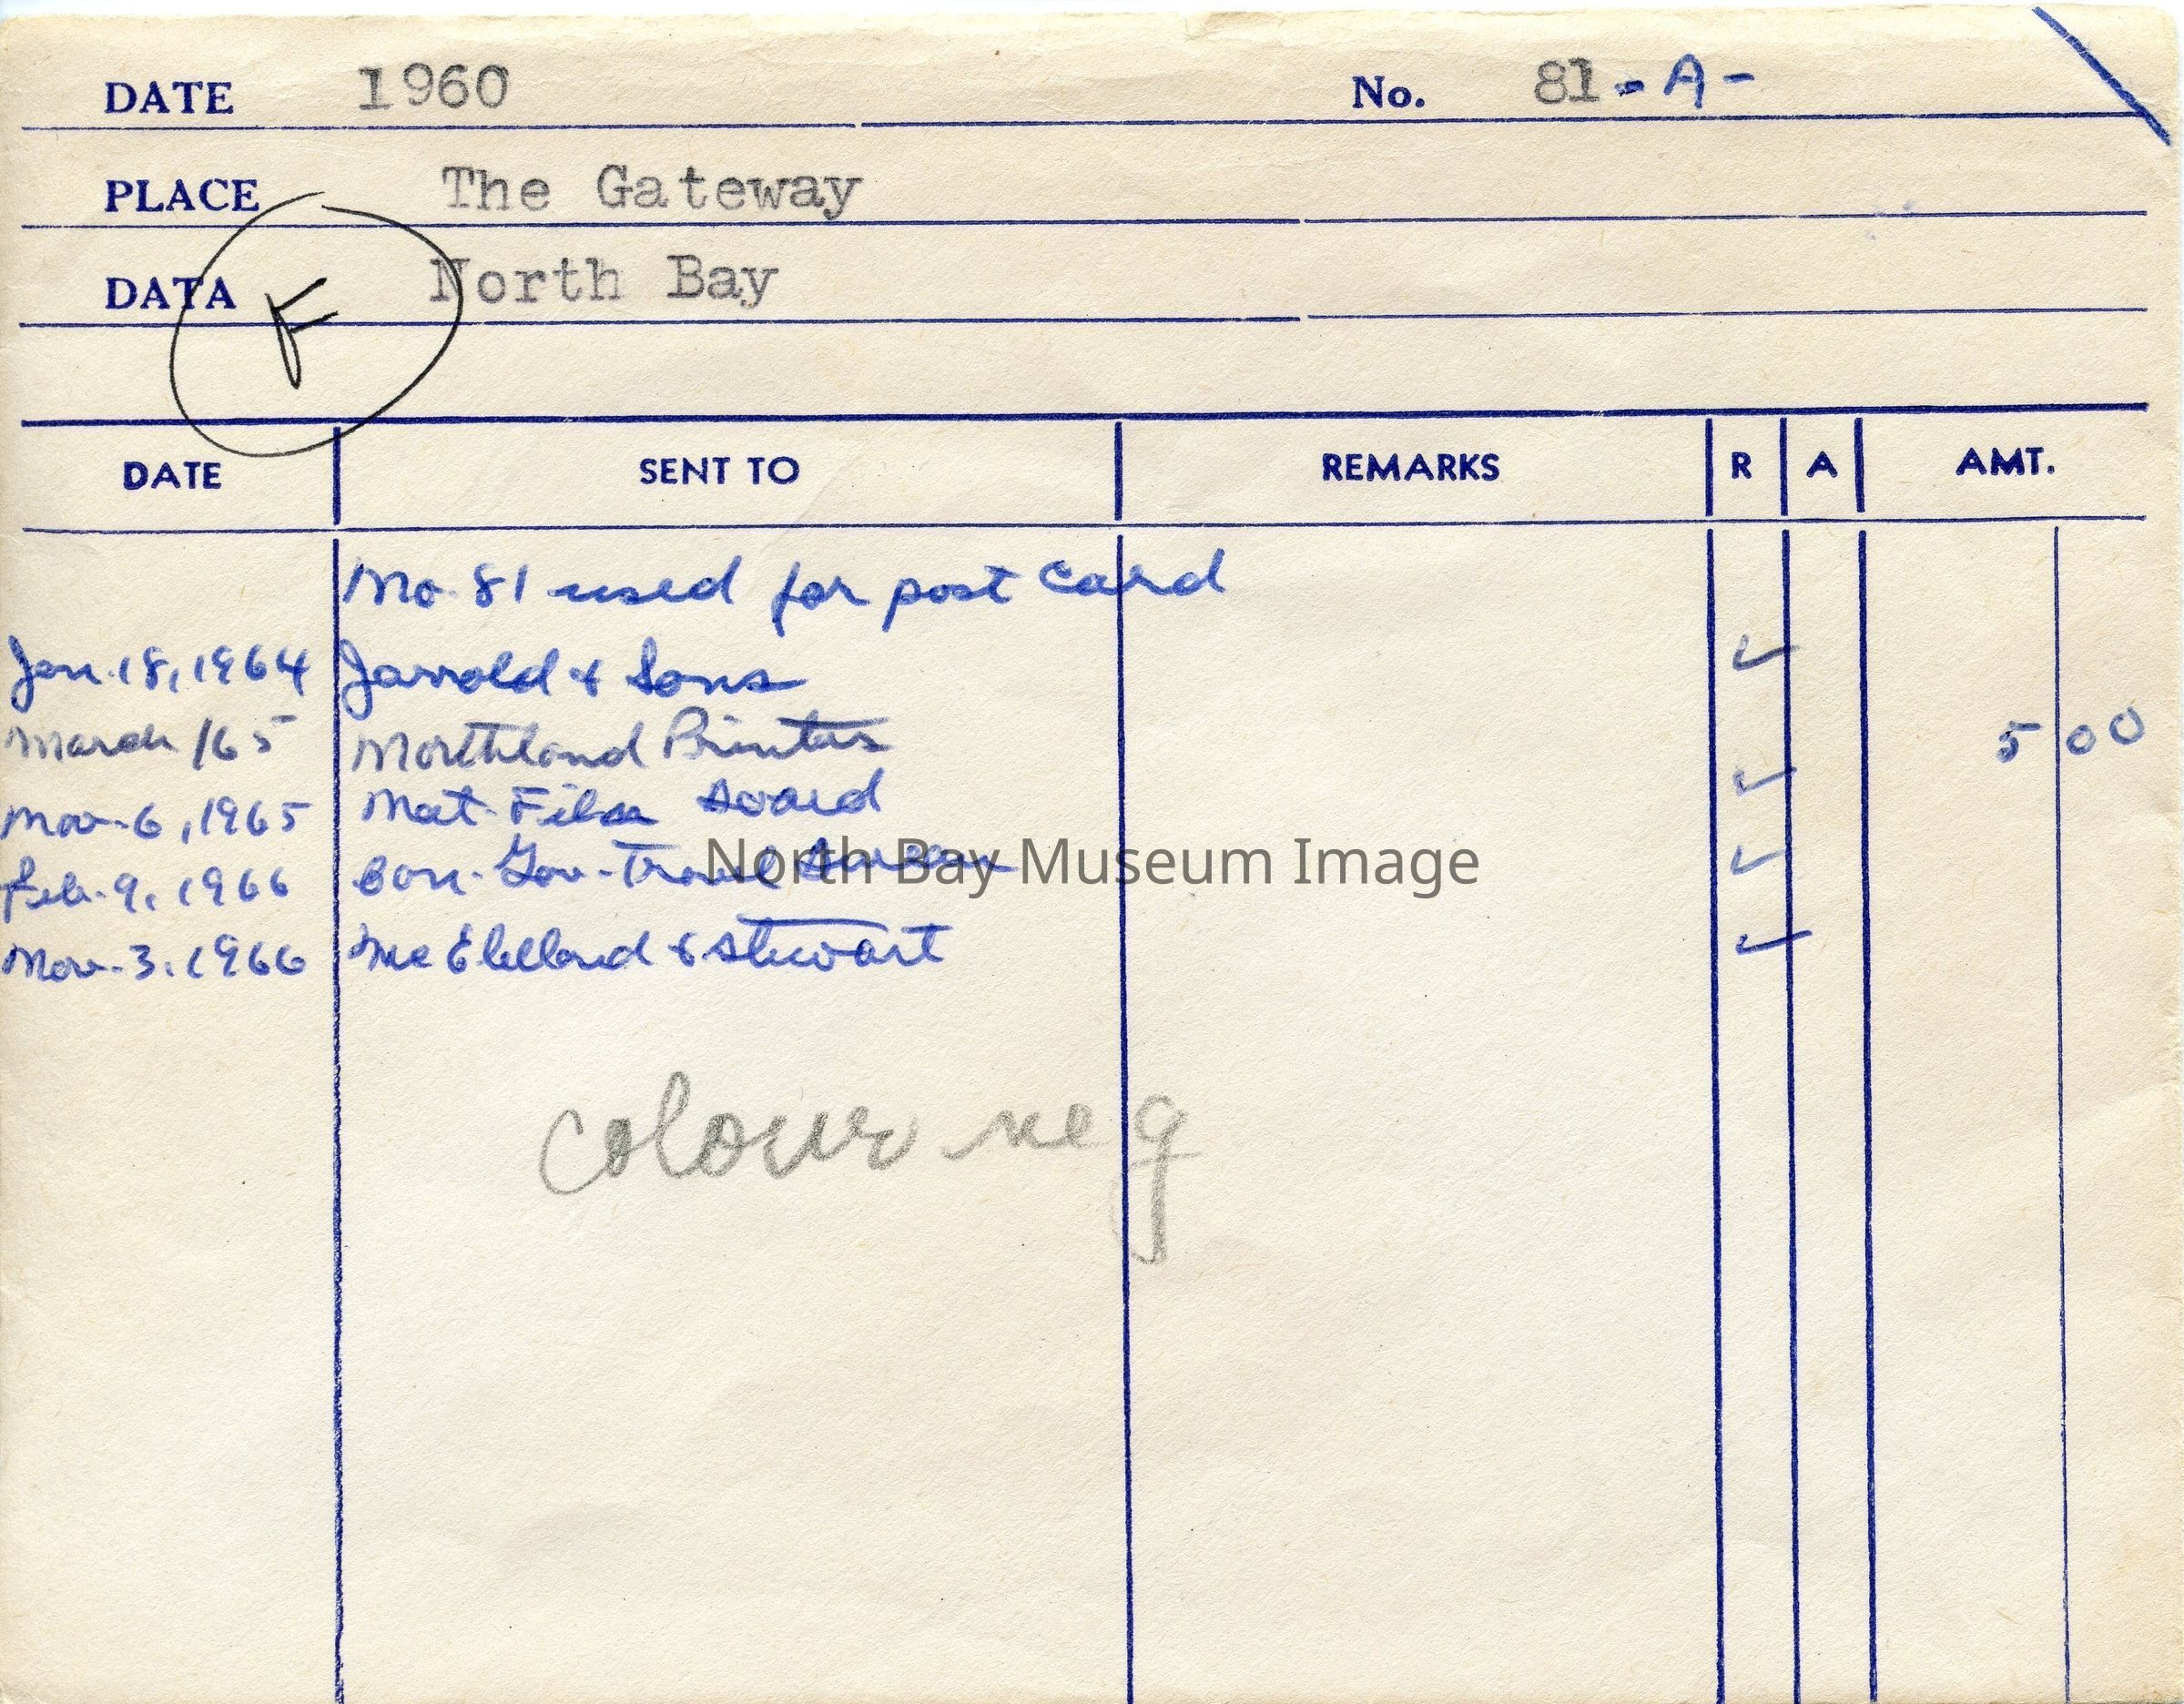 DATE 1960 No. 81-A-
PLACE The Gateway
DATA North Bay
F
DATE SENT TO REMARKS R A AMT.
No. 81 used for post card
Jan. 18, 1964 Jarrold & Sons ✓
March /65 Northland Printers 5 00
Nov. 6, 1965 Nat. Film Board ✓
Feb. 9, 1966 Can. Gov. Travel Bureau ✓
North Bay Museum Image
Nov. 3. 1966 McClelland & Stewart ✓
colour neg